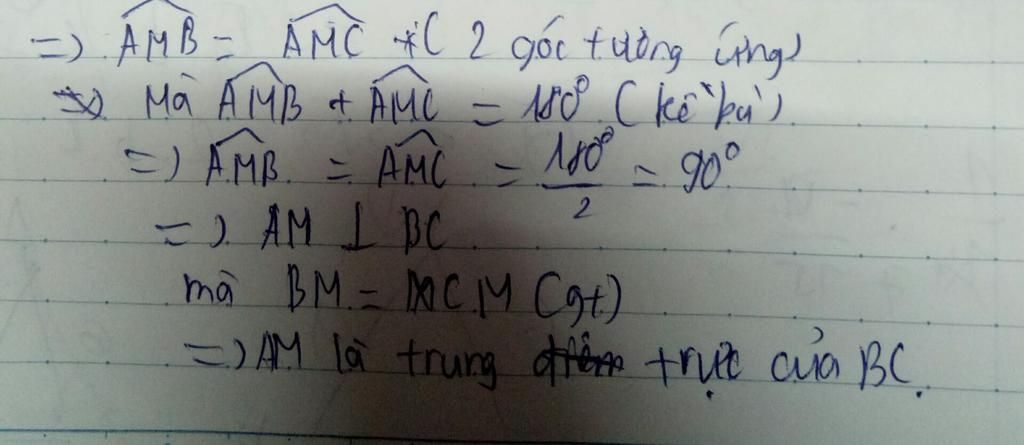 => AMB = AMC ( 2 góc tương ứng)
Mà AMB + AMC = 180° (kề bù)
=> AMB = AMC = 180°/2 = 90°
=> AM ⊥ BC
mà BM = CM (gt)
=> AM là trung trực của BC.